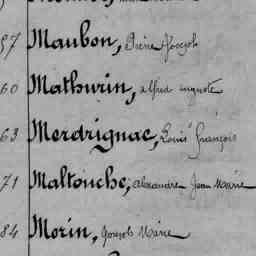 97 Maubon, Pierre Joseph
60 Mathurin, alfred auguste
63 Merdrignac, Louis François
71 Maltouche, alexandre Jean Marie
84 Morin, Joseph Marie